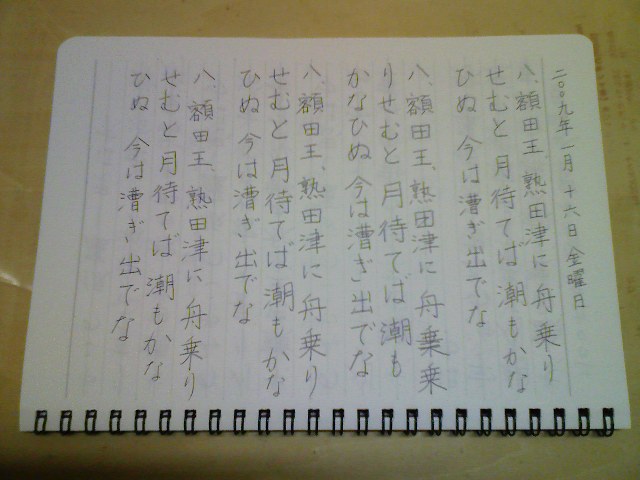 二〇〇九年一月十六日金曜日
八、額田王、熟田津に 舟乗り
せむと 月待てば 潮もかな
ひぬ 今は漕ぎ出でな
八、額田王、熟田津に 舟乗乗
りせむと 月待てば 潮も
かなひぬ 今は漕ぎ出でな
八、額田王、熟田津に 舟乗り
せむと 月待てば 潮もかな
ひぬ 今は漕ぎ出でな
八、額田王、熟田津に 舟乗り
せむと 月待てば 潮もかな
ひぬ 今は漕ぎ出でな